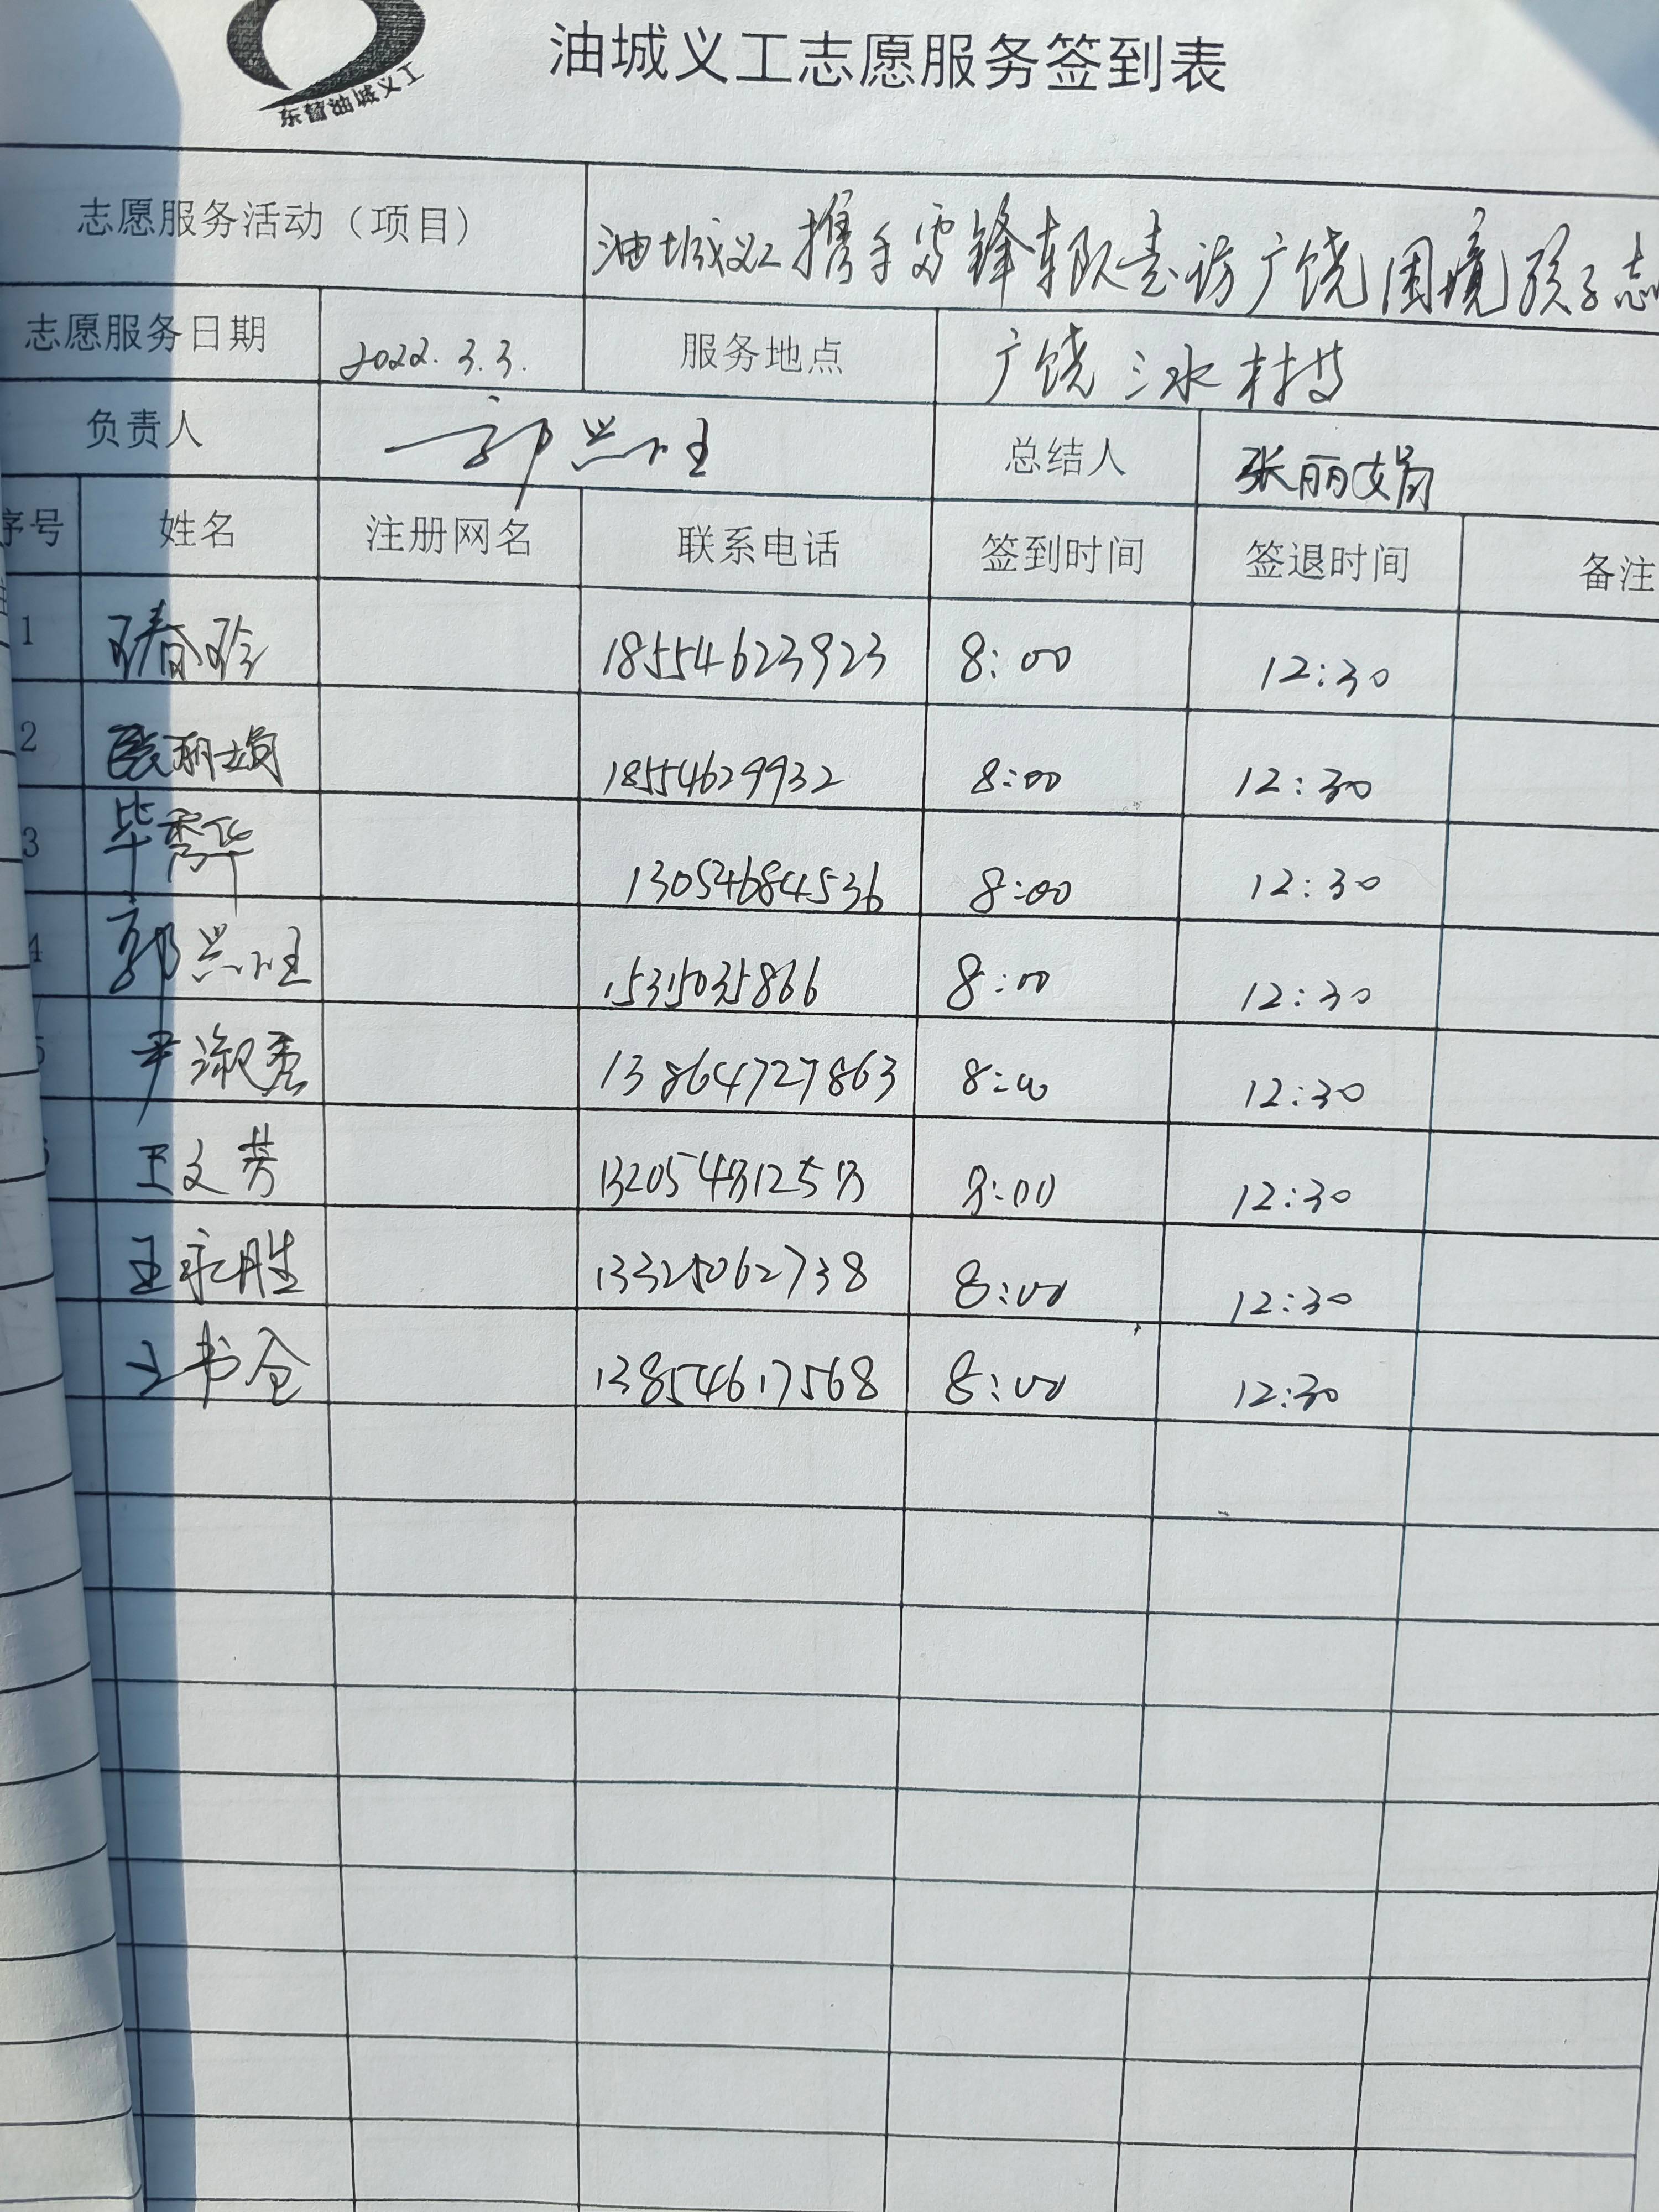 油城义工志愿服务签到表
东营油城义工
志愿服务活动（项目） 油城义工携手雷锋车队走访广饶困境孩子志
志愿服务日期 2022.3.3. 服务地点 广饶三水村
负责人 郭兴旺 总结人 张丽娟
序号 姓名 注册网名 联系电话 签到时间 签退时间 备注
1 春玲 18554623923 8:00 12:30
2 张丽娟 18554629932 8:00 12:30
3 毕秀华 13054684536 8:00 12:30
4 郭兴旺 15315035866 8:00 12:30
5 尹淑香 13864727863 8:00 12:30
王文芳 8:00 12:30
王永胜 13325062738 8:00 12:30
王书仓 13854617568 8:00 12:30